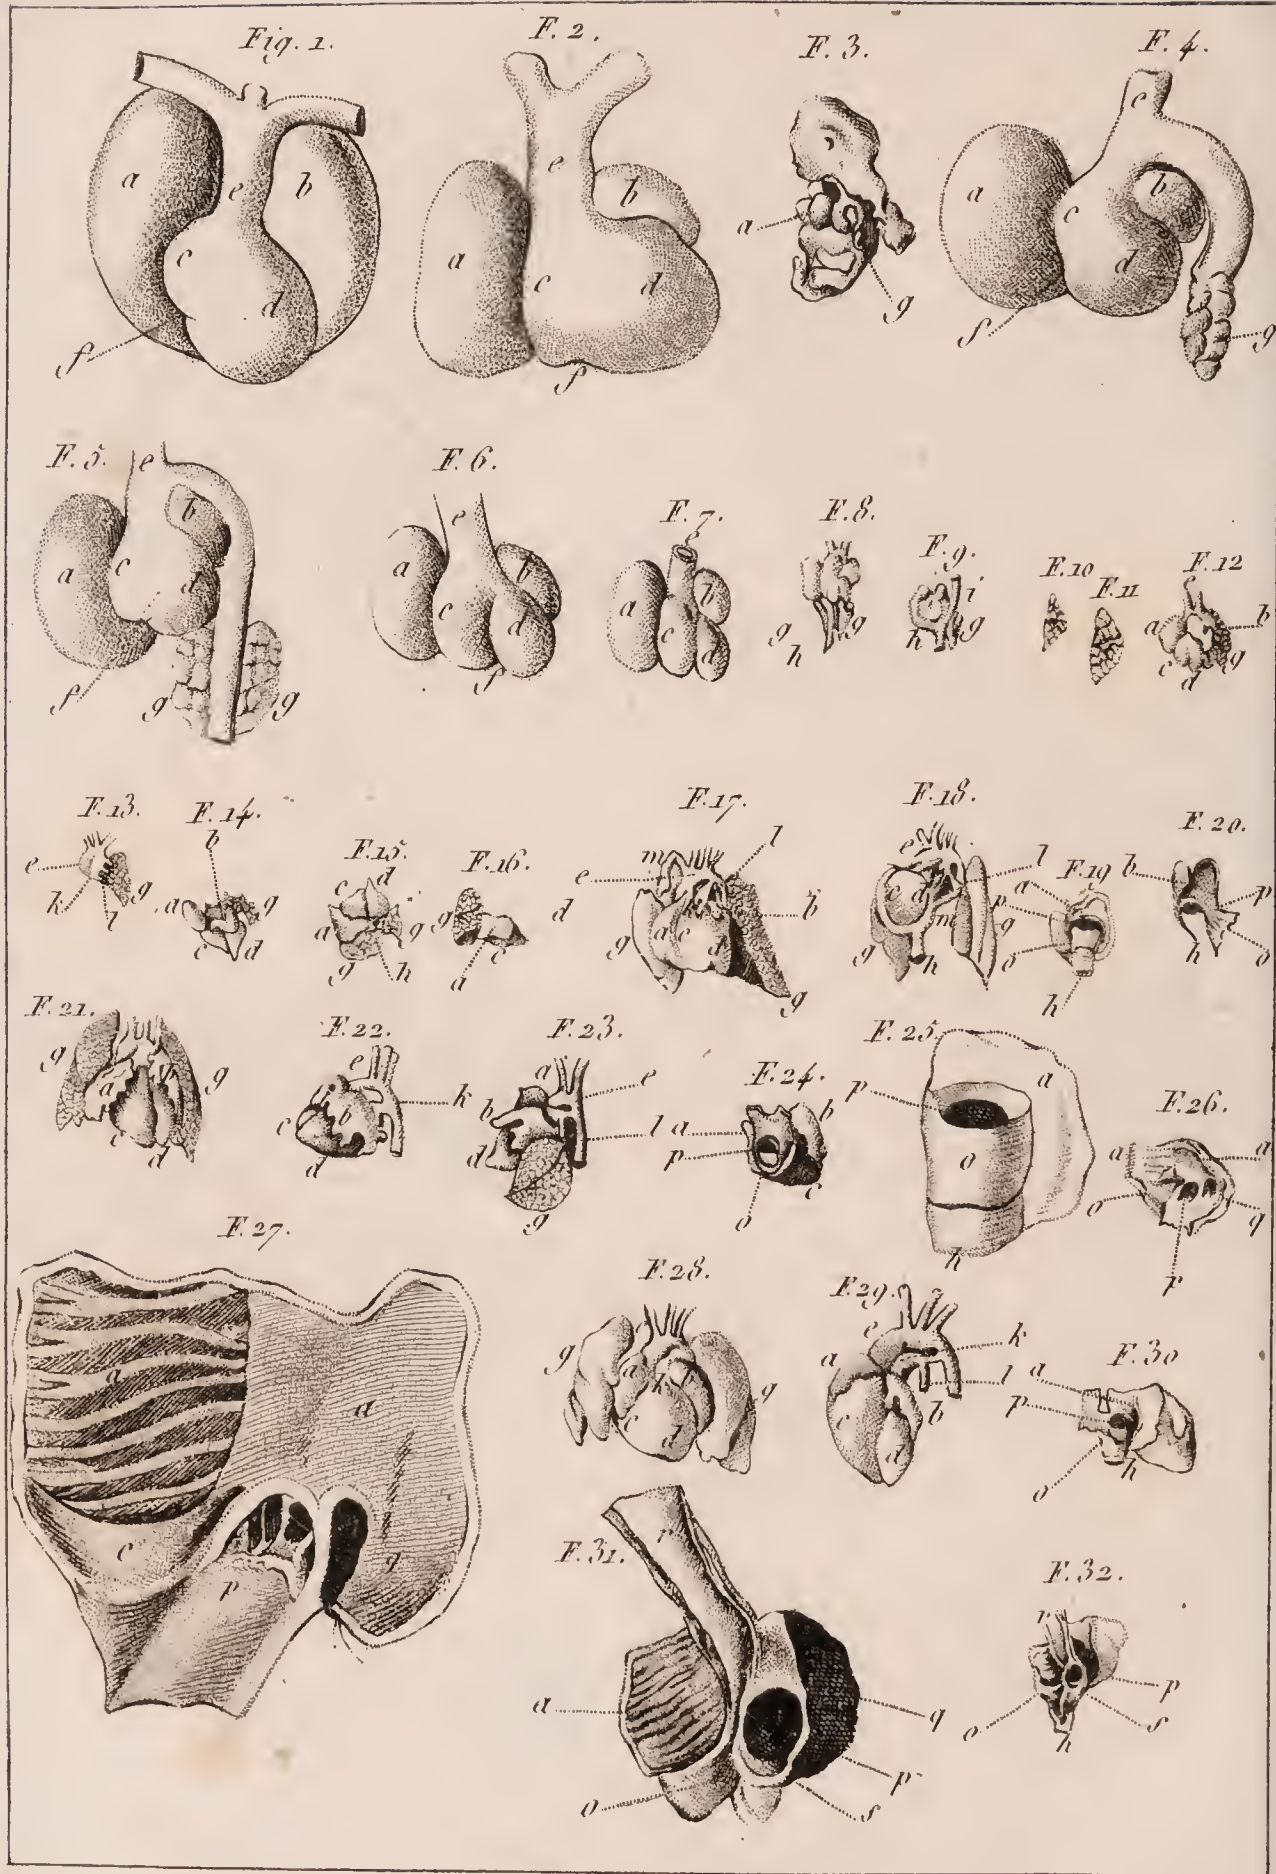 Fig. 1.
F. 2.
F. 3.
F. 4.
a
e
b
c
d
f
a
e
b
c
d
f
a
g
e
a
c
b
d
f
g
F. 5.
e
b
a
c
d
f
g
g
F. 6.
e
a
b
c
d
f
F. 7.
e
a
b
c
d
F. 8.
g
g
h
F. 9.
i
g
h
F. 10
F. 11
F. 12
e
a
b
c
g
d
F. 13.
e
k
l
g
F. 14.
b
a
g
c
d
F. 15.
c
d
a
g
g
h
F. 16.
g
a
c
d
F. 17.
m
l
e
b
g
a
c
d
g
F. 18.
e
l
c
d
m
g
g
h
F. 19
a
p
o
h
F. 20.
b
p
h
o
F. 21.
g
a
b
g
c
d
F. 22.
e
k
c
b
d
F. 23.
a
e
b
l
d
g
F. 24.
a
b
p
c
o
F. 25.
p
a
o
h
F. 26.
a
a
o
q
p
F. 27.
a
a
c
p
q
F. 28.
g
a
k
b
g
c
d
F. 29.
e
k
a
l
c
b
d
F. 30
a
p
o
h
F. 31.
r
a
q
p
o
s
F. 32.
r
p
o
s
h